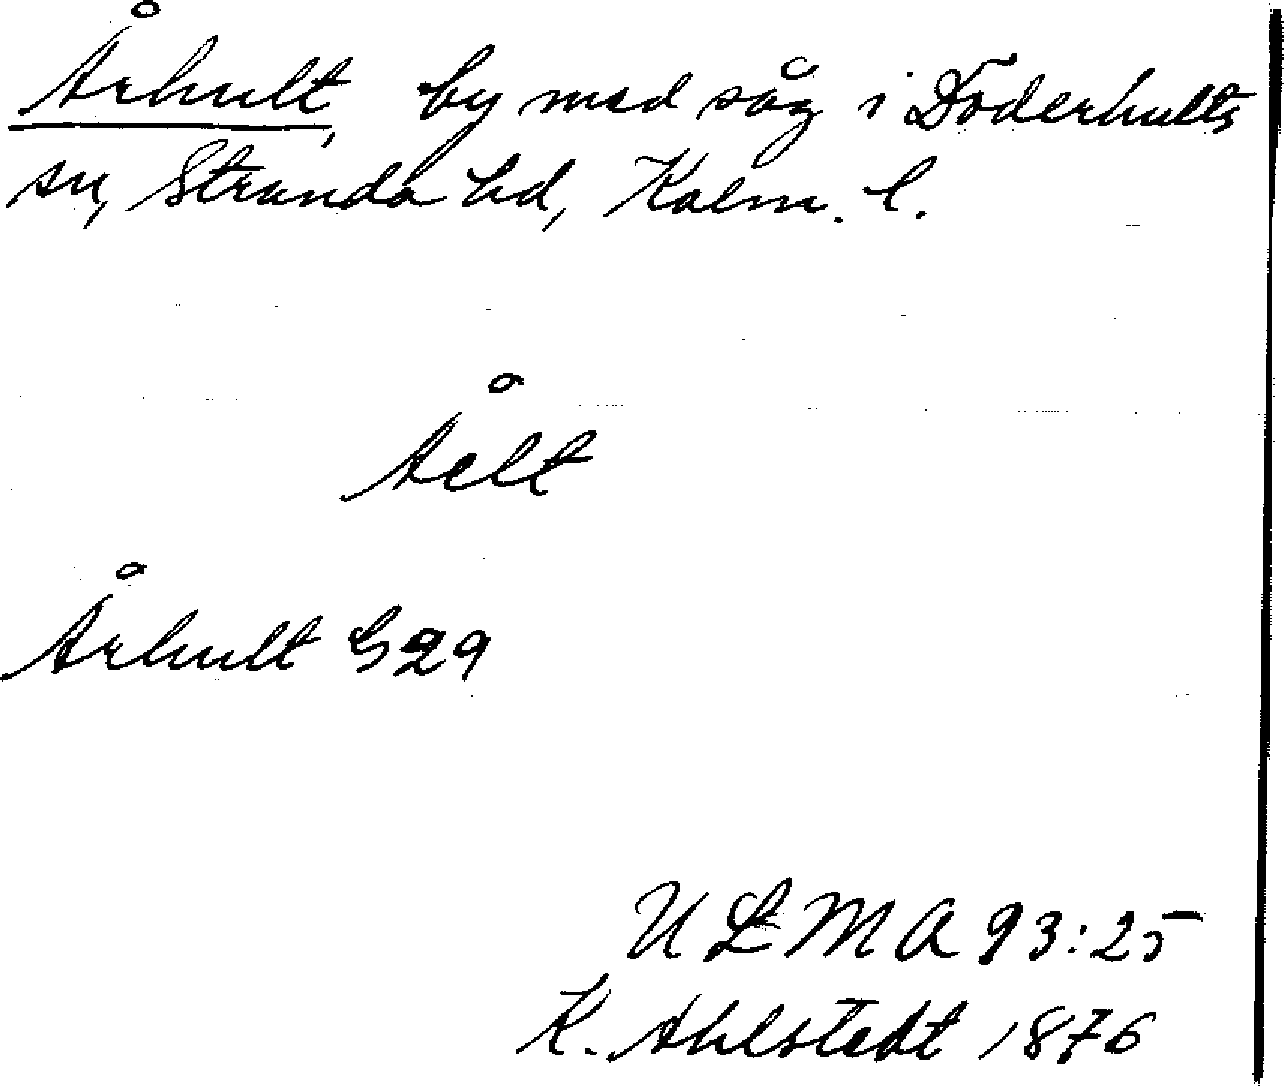 Århult, by med såg i Döderhults
sn, Stranda hd, Kalm. l.
Åelt
Århult G29
ULMA 93:25
K. Ahlstedt 1876